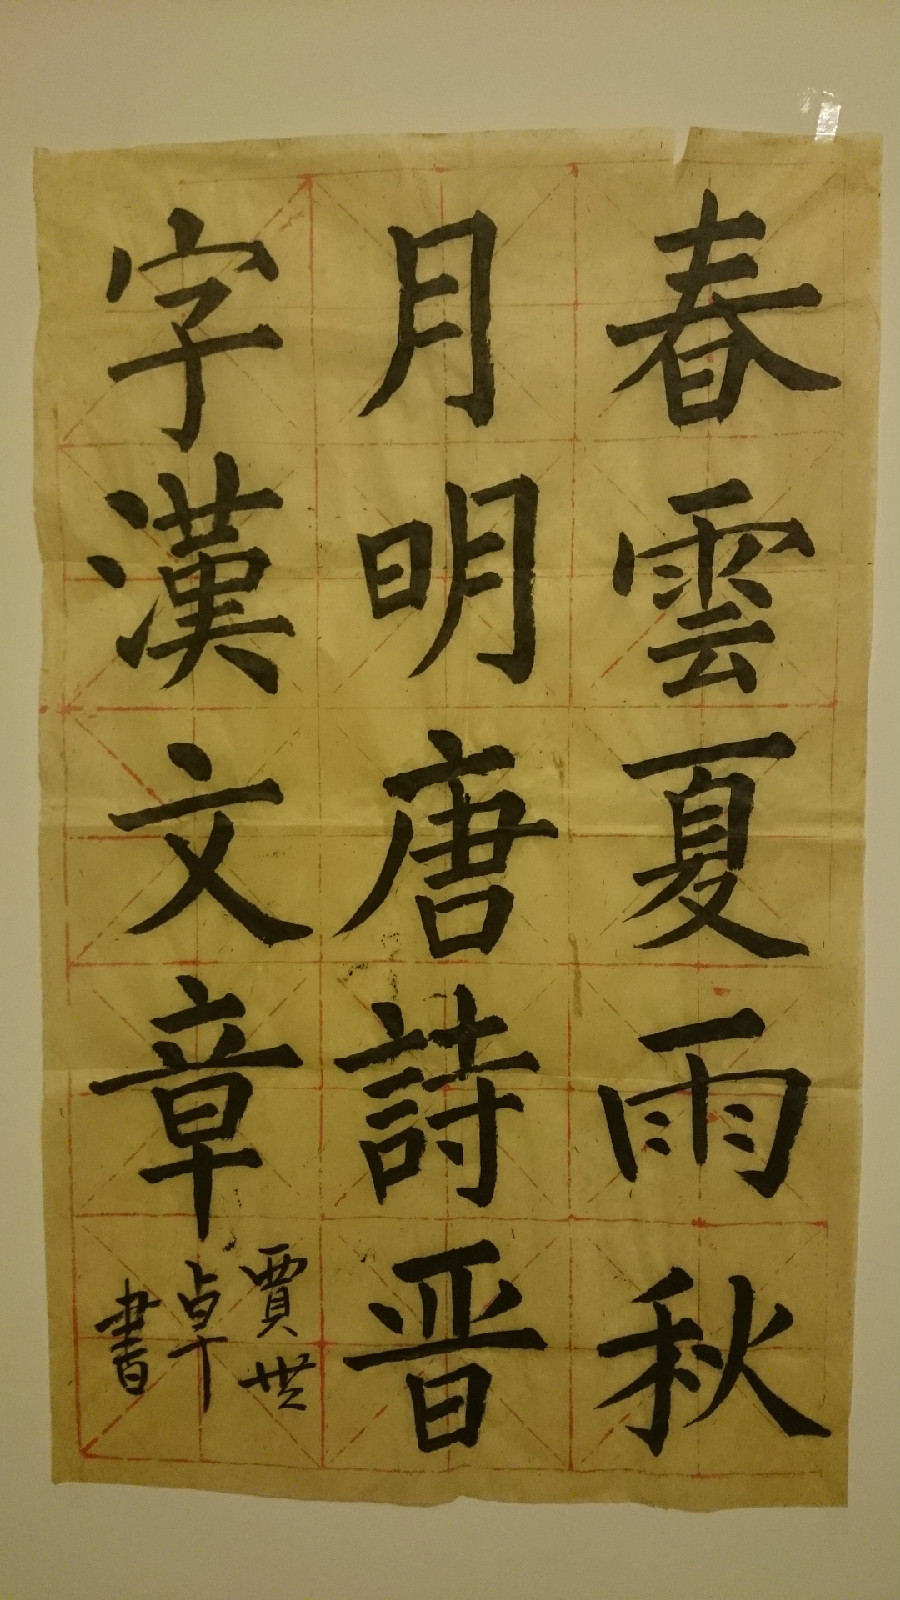 春雲夏雨秋
月明唐詩晋
字漢文章
賈世
卓
書